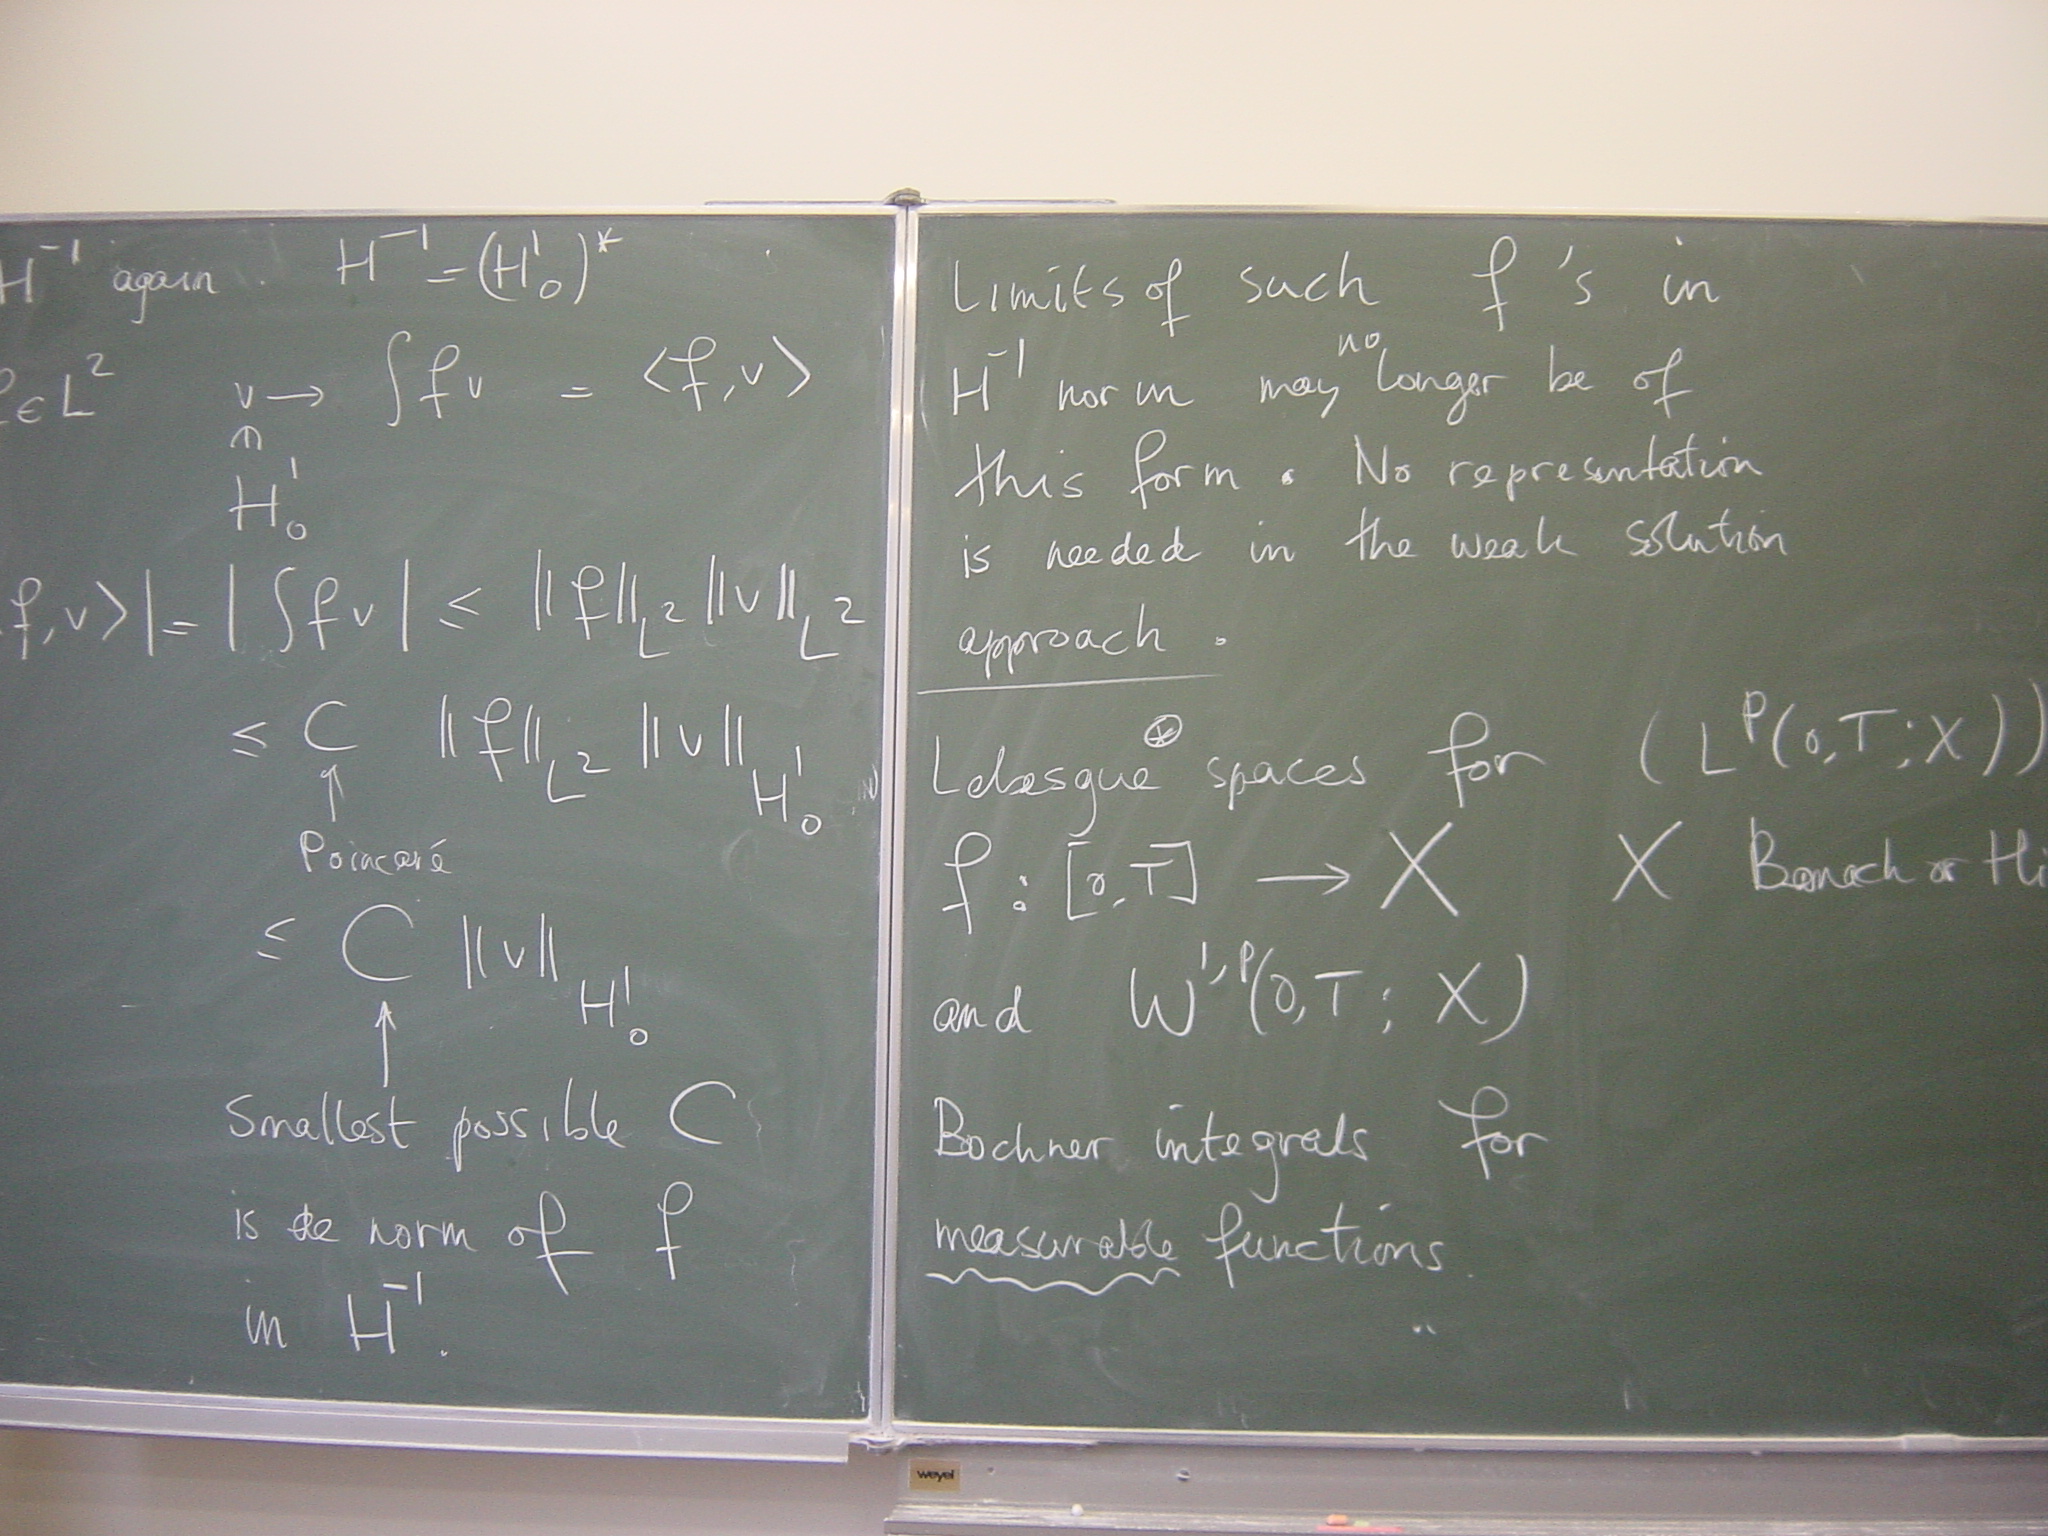 H⁻¹ again. H⁻¹ = (H¹₀)*
f ∈ L² v → ∫ f v = <f, v>
∈
H¹₀
f, v>| = | ∫ f v | ≤ ||f||_L² ||v||_L²
≤ C ||f||_L² ||v||_H¹₀
↑
Poincaré
≤ C ||v||_H¹₀
↑
Smallest possible C
is de norm of f
in H⁻¹.
Limits of such f's in
H⁻¹ norm may no longer be of
this form. No representation
is needed in the weak solution
approach.
Lebesgue ⊛ spaces for (L^p(0,T;X))
f : [0,T] → X X Banach or Hi
and W^{1,p}(0,T; X)
Bochner integrals for
measurable functions.
weyel